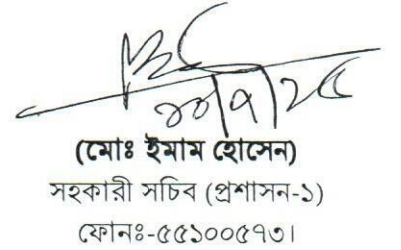 (মোঃ ইমাম হোসেন)
সহকারী সচিব (প্রশাসন-১)
ফোনঃ-৫৫১০০৫৭৩।